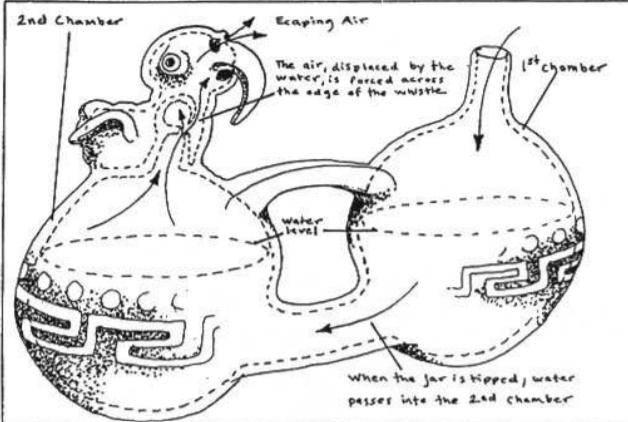 2nd Chamber
Ecaping Air
The air, displaced by the
water, is forced across
the edge of the whistle.
1st chamber
water
level
When the jar is tipped, water
passes into the 2nd chamber